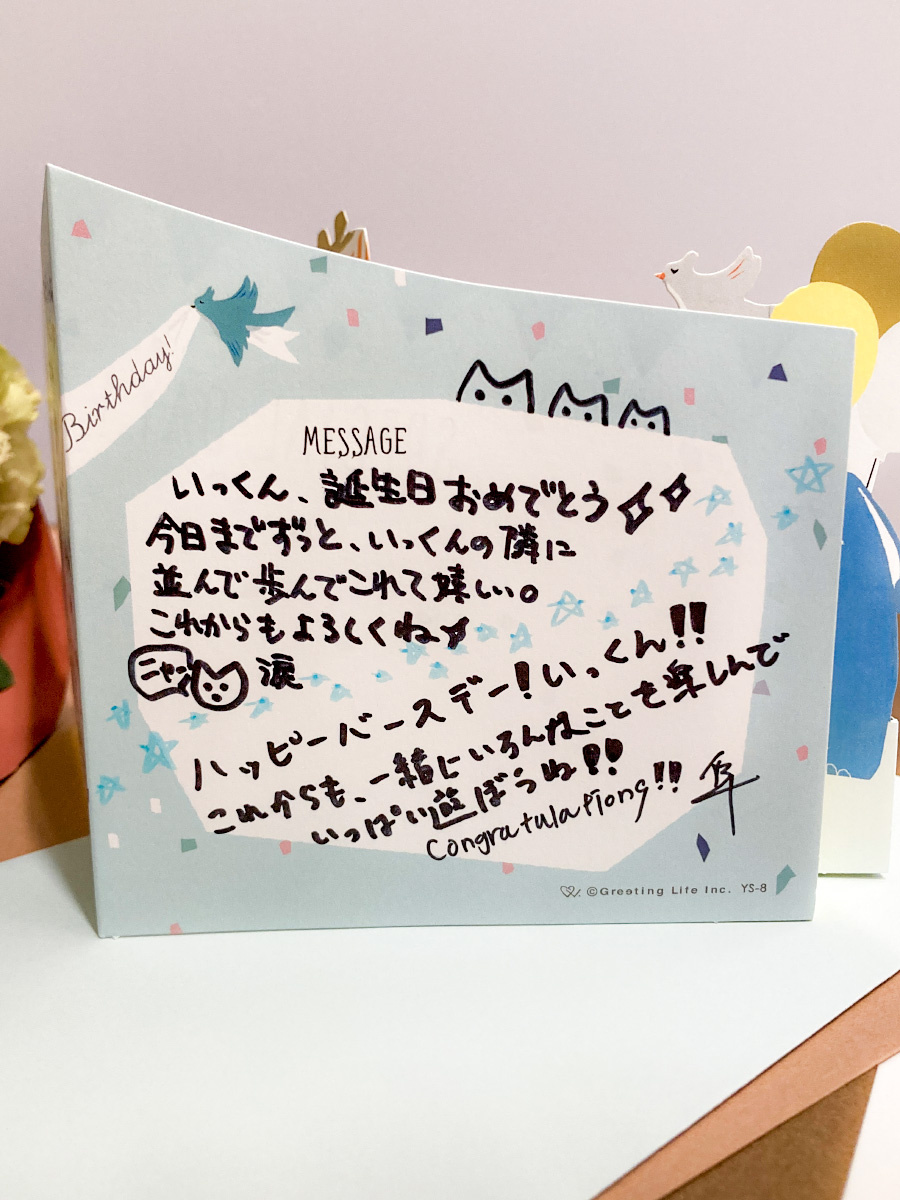 Birthday!
MESSAGE
いっくん、誕生日おめでとう
今日までずっと、いっくんの隣に
並んで歩んでこれて嬉しい。
これからもよろしくね
ニャン
涙
ハッピーバースデー!いっくん!!
これからも、一緒にいろんなことを楽しんで
いっぱい遊ぼうね!!
Congratulations!!
隼
©Greeting Life Inc. YS-8